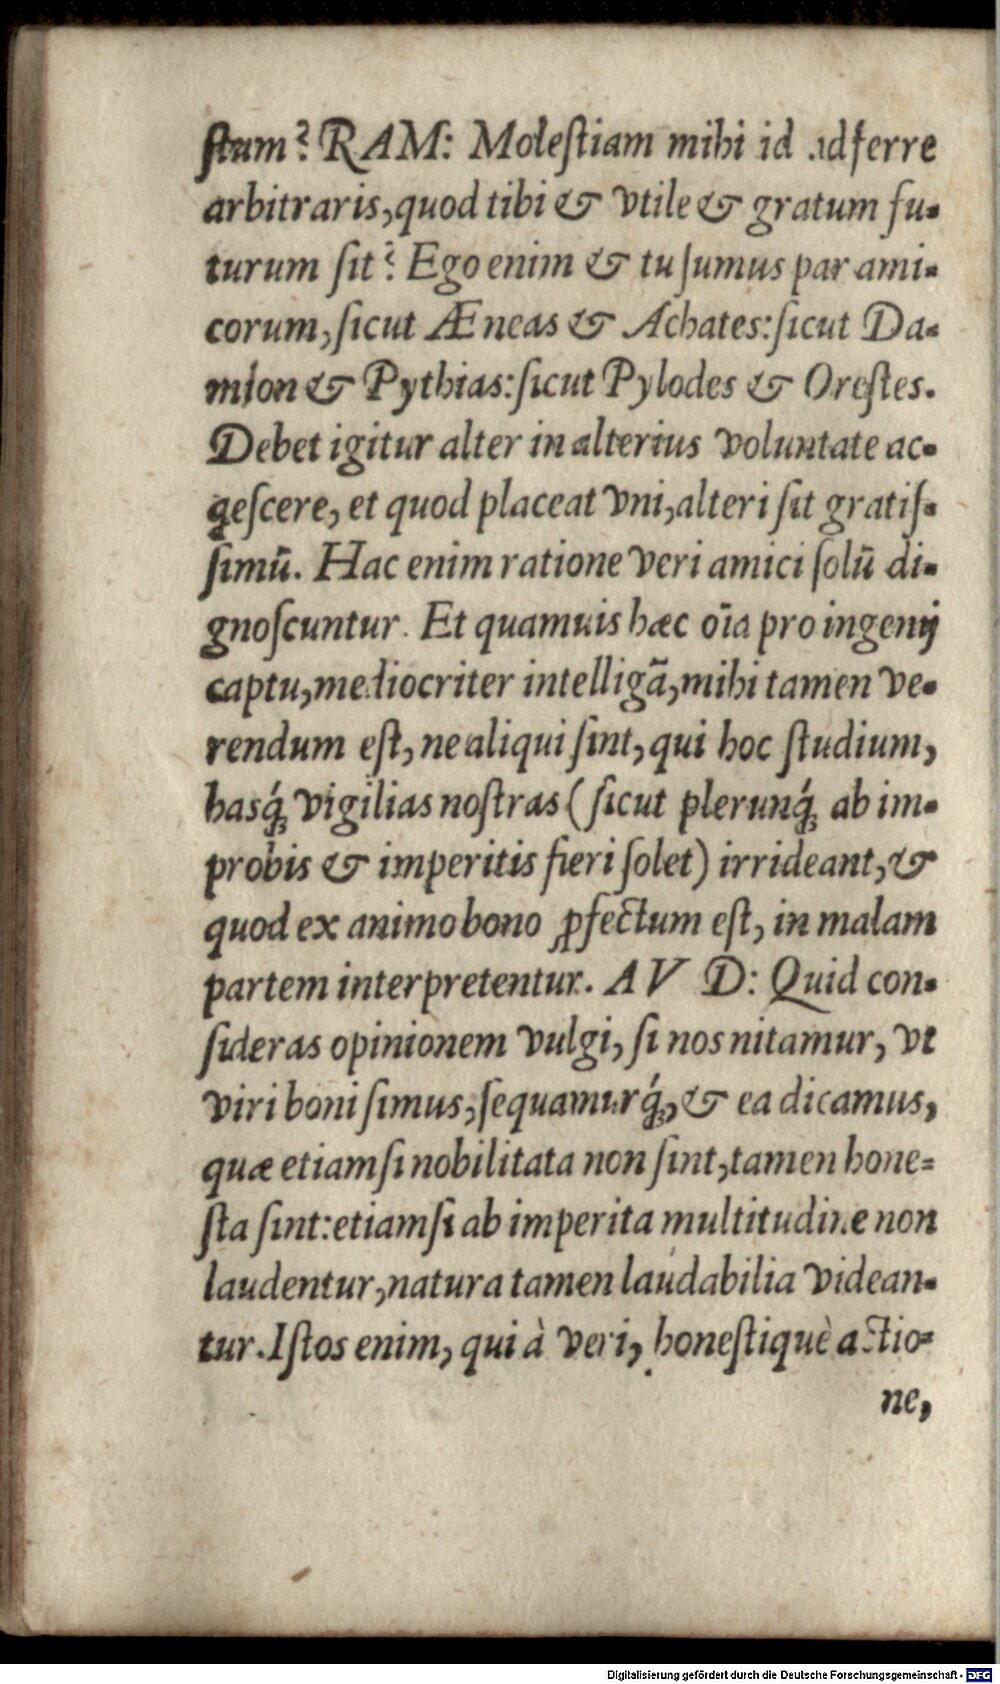 ſtum? RAM: Moleſtiam mihi id adferre
arbitraris, quod tibi & vtile & gratum fu-
turum ſit? Ego enim & tu ſumus par ami-
corum, ſicut Æneas & Achates: ſicut Da-
mion & Pythias: ſicut Pylodes & Oreſtes.
Debet igitur alter in alterius voluntate ac-
qeſcere, et quod placeat vni, alteri ſit gratiſ-
ſimū. Hac enim ratione veri amici ſolū di-
gnoſcuntur. Et quamuis hæc oīa pro ingenij
captu, mediocriter intelligā, mihi tamen ve-
rendum eſt, ne aliqui ſint, qui hoc ſtudium,
hasq́ꝫ vigilias noſtras (ſicut plerunq́ꝫ ab im-
probis & imperitis fieri ſolet) irrideant, &
quod ex animo bono ꝓfectum eſt, in malam
partem interpretentur. AVD: Quid con-
ſideras opinionem vulgi, ſi nos nitamur, vt
viri boni ſimus, ſequamurq́ꝫ, & ea dicamus,
quæ etiamſi nobilitata non ſint, tamen hone-
ſta ſint: etiamſi ab imperita multitudine non
laudentur, natura tamen laudabilia videan-
tur. Iſtos enim, qui à veri, honeſtiquè actio-
ne,
Digitalisierung gefördert durch die Deutsche Forschungsgemeinschaft - DFG